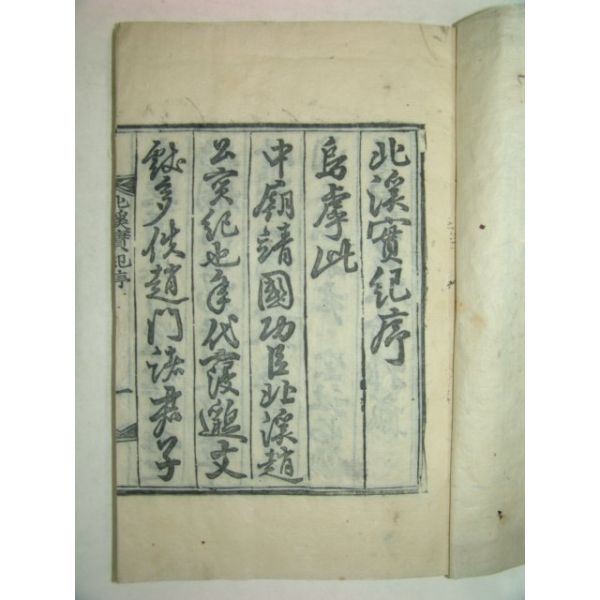 北溪實紀序
烏虖此
中廟靖國功臣北溪趙
公實紀也年代寖邈文
獻多佚趙門諸君子
北溪實紀序 一